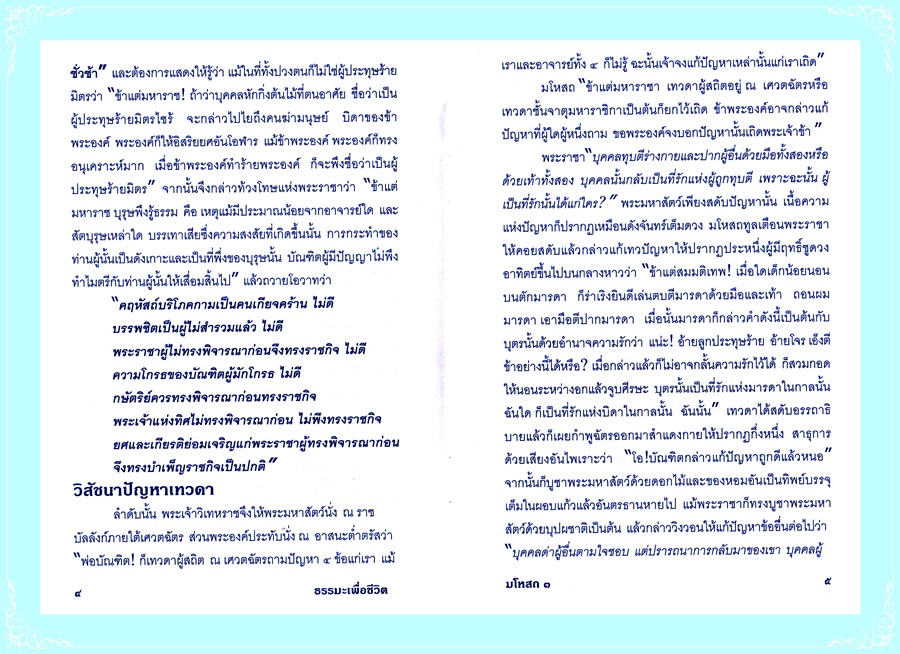 ชั่วช้า” และต้องการแสดงให้รู้ว่า แม้ในที่ทั้งปวงตนก็ไม่ใช่ผู้ประทุษร้าย
มิตรว่า “ข้าแต่มหาราช! ถ้าว่าบุคคลหักกิ่งต้นไม้ที่ตนอาศัย ชื่อว่าเป็น
ผู้ประทุษร้ายมิตรไซร้ จะกล่าวไปไยถึงคนฆ่ามนุษย์ บิดาของข้า
พระองค์ พระองค์ก็ให้อิสริยยศอันโอฬาร แม้ข้าพระองค์ พระองค์ก็ทรง
อนุเคราะห์มาก เมื่อข้าพระองค์ทำร้ายพระองค์ ก็จะพึงชื่อว่าเป็นผู้
ประทุษร้ายมิตร” จากนั้นจึงกล่าวท้วงโทษแห่งพระราชาว่า “ข้าแต่
มหาราช บุรุษพึงรู้ธรรม คือ เหตุแม้มีประมาณน้อยจากอาจารย์ใด และ
สัตบุรุษเหล่าใด บรรเทาเสียซึ่งความสงสัยที่เกิดขึ้นนั้น การกระทำของ
ท่านผู้นั้นเป็นดังเกาะและเป็นที่พึ่งของบุรุษนั้น บัณฑิตผู้มีปัญญาไม่พึง
ทำไมตรีกับท่านผู้นั้นให้เสื่อมสิ้นไป” แล้วถวายโอวาทว่า
“คฤหัสถ์บริโภคกามเป็นคนเกียจคร้าน ไม่ดี
บรรพชิตเป็นผู้ไม่สำรวมแล้ว ไม่ดี
พระราชาผู้ไม่ทรงพิจารณาก่อนจึงทรงราชกิจ ไม่ดี
ความโกรธของบัณฑิตผู้มักโกรธ ไม่ดี
กษัตริย์ควรทรงพิจารณาก่อนทรงราชกิจ
พระเจ้าแห่งทิศไม่ทรงพิจารณาก่อน ไม่พึงทรงราชกิจ
ยศและเกียรติย่อมเจริญแก่พระราชาผู้ทรงพิจารณาก่อน
จึงทรงบำเพ็ญราชกิจเป็นปกติ”
วิสัชนาปัญหาเทวดา
ลำดับนั้น พระเจ้าวิเทหราชจึงให้พระมหาสัตว์นั่ง ณ ราช
บัลลังก์ภายใต้เศวตฉัตร ส่วนพระองค์ประทับนั่ง ณ อาสนะต่ำตรัสว่า
“พ่อบัณฑิต! ก็เทวดาผู้สถิต ณ เศวตฉัตรถามปัญหา ๔ ข้อแก่เรา แม้
๔ ธรรมะเพื่อชีวิต
เราและอาจารย์ทั้ง ๔ ก็ไม่รู้ ฉะนั้นเจ้าจงแก้ปัญหาเหล่านั้นแก่เราเถิด”
มโหสถ “ข้าแต่มหาราชา เทวดาผู้สถิตอยู่ ณ เศวตฉัตรหรือ
เทวดาชั้นจาตุมหาราชิกาเป็นต้นก็ยกไว้เถิด ข้าพระองค์อาจกล่าวแก้
ปัญหาที่ผู้ใดผู้หนึ่งถาม ขอพระองค์จงบอกปัญหานั้นเถิดพระเจ้าข้า ”
พระราชา“บุคคลทุบตีร่างกายและปากผู้อื่นด้วยมือทั้งสองหรือ
ด้วยเท้าทั้งสอง บุคคลนั้นกลับเป็นที่รักแห่งผู้ถูกทุบตี เพราะฉะนั้น ผู้
เป็นที่รักนั้นได้แก่ใคร?” พระมหาสัตว์เพียงสดับปัญหานั้น เนื้อความ
แห่งปัญหาก็ปรากฏเหมือนดังจันทร์เต็มดวง มโหสถทูลเตือนพระราชา
ให้คอยสดับแล้วกล่าวแก้เทวปัญหาให้ปรากฏประหนึ่งผู้มีฤทธิ์ชูดวง
อาทิตย์ขึ้นไปบนกลางหาวว่า “ข้าแต่สมมติเทพ! เมื่อใดเด็กน้อยนอน
บนตักมารดา ก็ร่าเริงยินดีเล่นตบตีมารดาด้วยมือและเท้า ถอนผม
มารดา เอามือตีปากมารดา เมื่อนั้นมารดาก็กล่าวคำดังนี้เป็นต้นกับ
บุตรนั้นด้วยอำนาจความรักว่า แน่ะ! อ้ายลูกประทุษร้าย อ้ายโจร เอ็งตี
ข้าอย่างนี้ได้หรือ? เมื่อกล่าวแล้วก็ไม่อาจกลั้นความรักไว้ได้ ก็สวมกอด
ให้นอนระหว่างอกแล้วจูบศีรษะ บุตรนั้นเป็นที่รักแห่งมารดาในกาลนั้น
ฉันใด ก็เป็นที่รักแห่งบิดาในกาลนั้น ฉันนั้น” เทวดาได้สดับอรรถาธิ
บายแล้วก็เผยกำพูฉัตรออกมาสำแดงกายให้ปรากฏกึ่งหนึ่ง สาธุการ
ด้วยเสียงอันไพเราะว่า “โอ!บัณฑิตกล่าวแก้ปัญหาถูกดีแล้วหนอ”
จากนั้นก็บูชาพระมหาสัตว์ด้วยดอกไม้และของหอมอันเป็นทิพย์บรรจุ
เต็มในผอบแก้วแล้วอันตรธานหายไป แม้พระราชาก็ทรงบูชาพระมหา
สัตว์ด้วยบุปผชาติเป็นต้น แล้วกล่าววิงวอนให้แก้ปัญหาข้ออื่นต่อไปว่า
“บุคคลด่าผู้อื่นตามใจชอบ แต่ปรารถนาการกลับมาของเขา บุคคลผู้
มโหสถ ๑ ๕